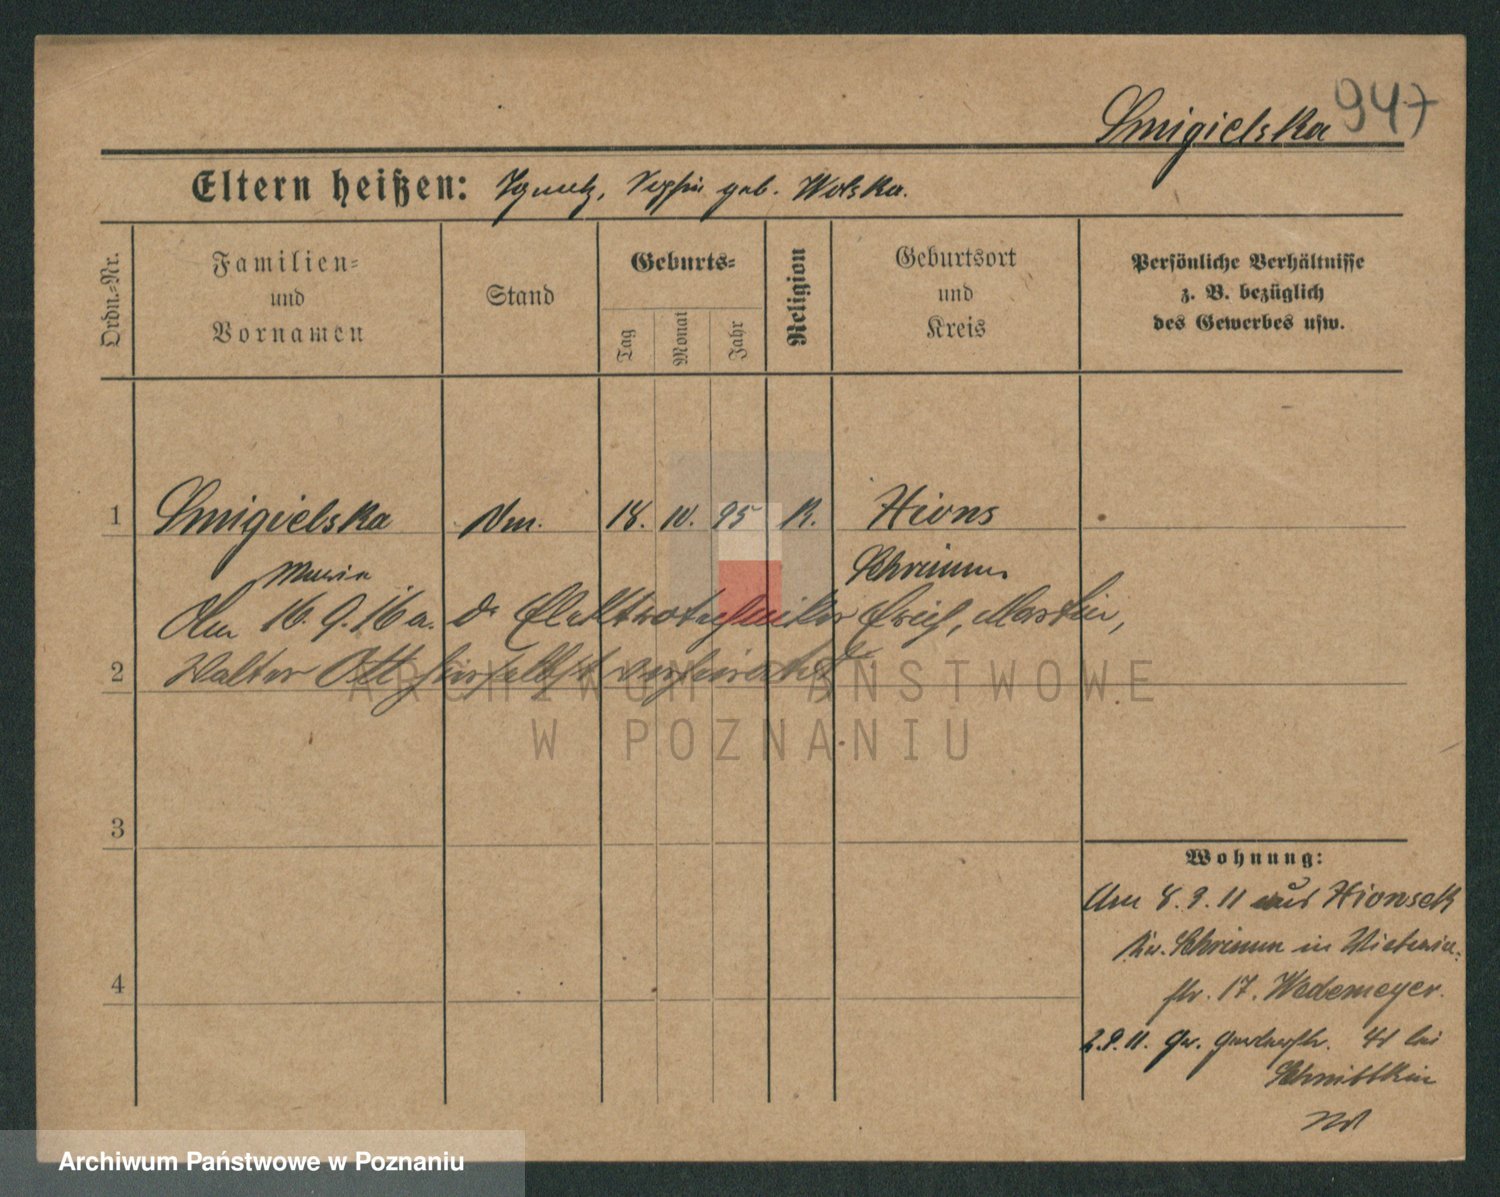 Smigielska 947
Eltern heißen: Ignatz, Sophie geb. Wolska.
Ordn.-Nr.
Familien-
und
Vornamen
Stand
Geburts-
Tag
Monat
Jahr
Religion
Geburtsort
und
Kreis
Persönliche Verhältnisse
z. B. bezüglich
des Gewerbes usw.
1 Smigielska 18. 10. 95 K. Xions
Maria Schrimm
Am 16. 9. 16 a. d. Elektrotechniker Erich, Martin,
2 Walter Ott hierselbst verheiratet
3
4
Wohnung:
Am 8. 3. 11 aus Xionsek
Kr. Schrimm in Victoria-
str. 17. Wedemeyer.
2.9.11. Gr. 41 bei
ARCHIWUM PAŃSTWOWE
W POZNANIU
Archiwum Państwowe w Poznaniu